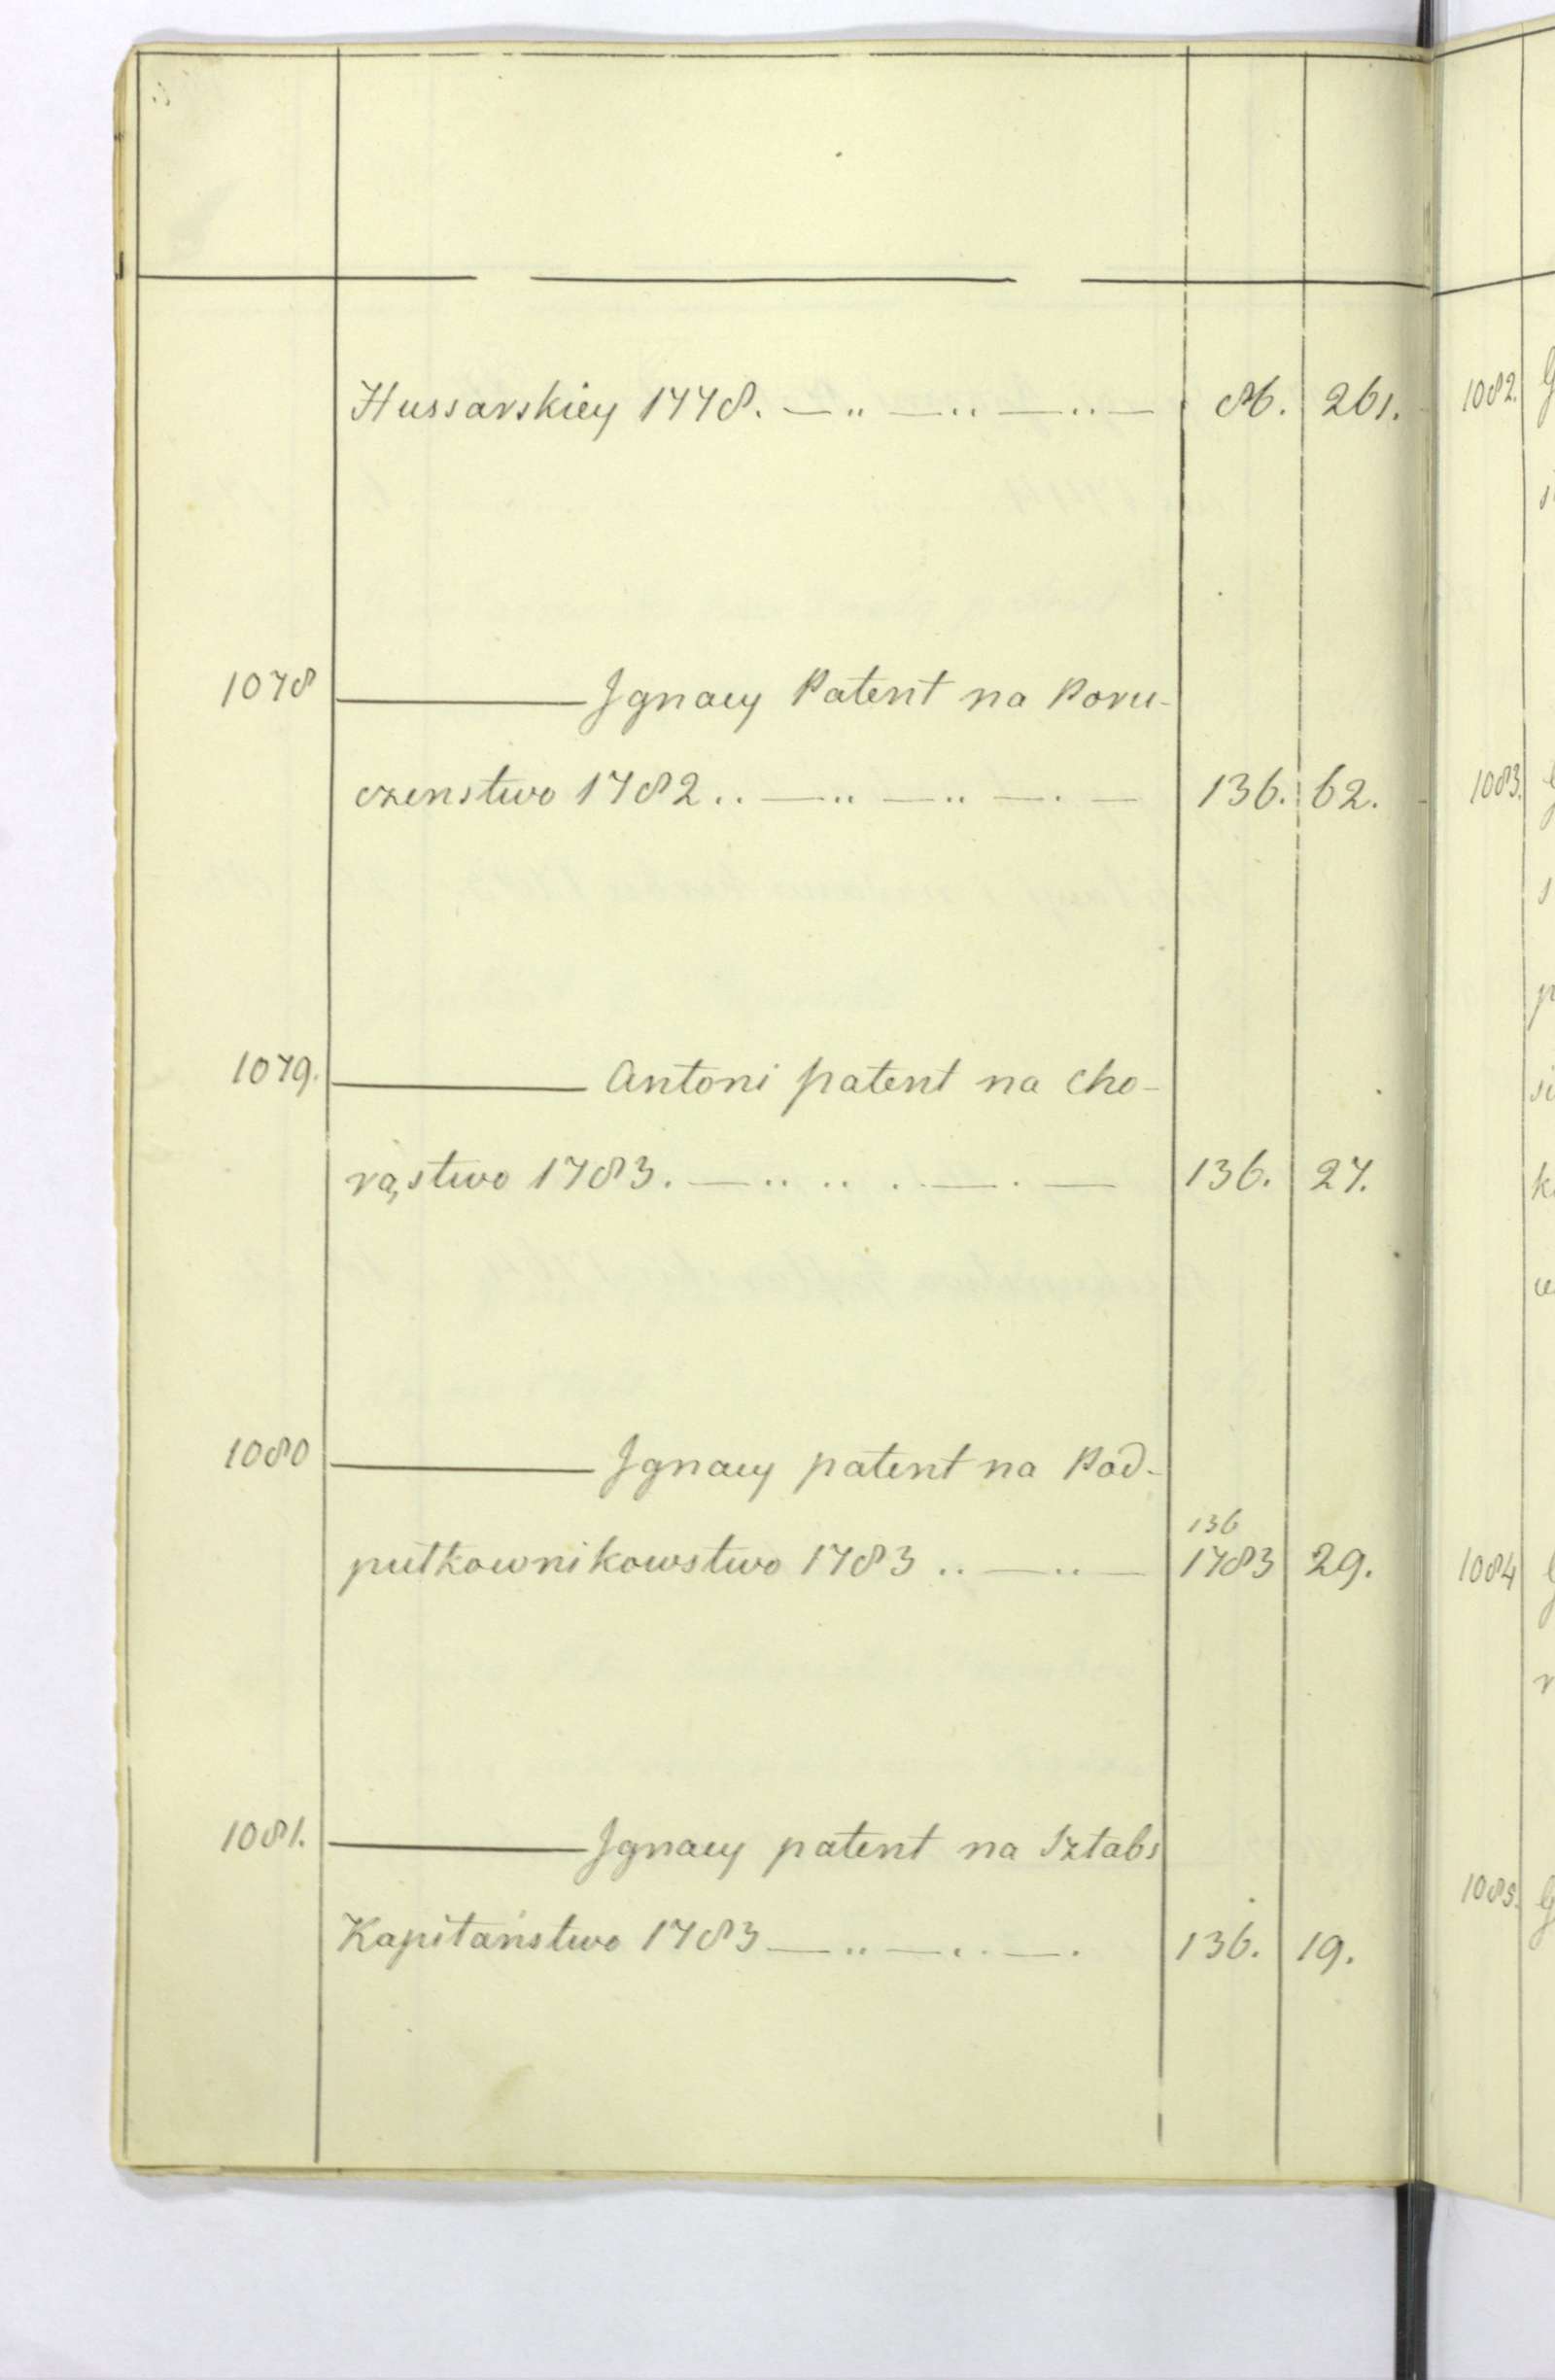 Hussarskiey 1778. — .. — .. — .. — 86. 261.
1078 ——— Ignacy Patent na Poru-
czenstwo 1782 .. — .. — .. — . — 136. 62.
1079. ——— Antoni patent na Cho-
rąstwo 1783. — .. .. . — . — 136. 27.
1080 ——— Ignacy patent na Pod-
136
pułkownikowstwo 1783 .. — .. — 1783 29.
1081. ——— Ignacy patent na Sztabs
Kapitaństwo 1783 — .. — .. — . 136. 19.
1082.
1083.
1084
1085.